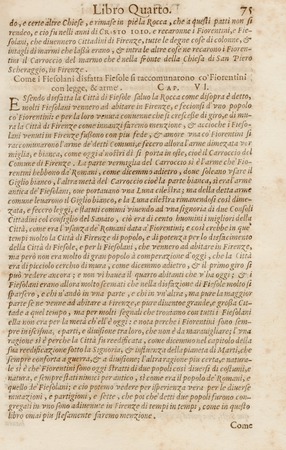 Libro Quarto. 75
do, e certe altre Chiese, e rimase in piè la Rocca, che a questi patti non si
rendeo, e ciò fu negli anni di CRISTO 1010. e recaronne i Fiorentini, e Fie-
solani, che divennero Cittadini di Firenze, tutte le degne cose di colonne, &
intagli di marmi che lassù erano, & intra le altre cose ne recarono i Fioren-
tini il Carroccio del marmo che è nella fronte della Chiesa di San Piero
Scheraggio, in Firenze.
Come i Fiesolani disfatta Fiesole si raccomunarono co' Fiorentini
con legge, & arme. CAP. VI.
ESsendo disfatta la Città di Fiesole salvo la Rocca come disopra è detto,
molti Fiesolani vennero ad abitare in Firenze, e feciosi d'uno popolo
co' Fiorentini: e per la loro venuta convenne che si crescesse di giro, e di mu-
ra la Città di Firenze come innanzi faremo menzione, & acciochè i Fieso-
lani venuti in Firenze fussono con più fede, & amore co' Fiorentini si
raccomunarono l'arme i detti Comuni, e feciero allora l'arme dimezzata ver-
miglia, e bianca, come oggi a' nostri dì si porta in oste, cioè il Carroccio del
Comune di Firenze. La parte vermiglia del Carroccio si è l'arme che' Fio-
rentini hebbono da' Romani, come dicemmo adietro, dove soleano usare il
Giglio bianco, e l'altra metà del Carroccio cioè la parte bianca, si era l'arme
antica de' Fiesolani, ove portavano una Luna cilestra; ma della detta arme
comune levarono il Giglio bianco, e la Luna cilestra rimanendosi così dimez-
zata, e fecero leggi, e statuti comuni vivendo ad una signoria di due Consoli
Cittadini col consiglio del Sanato, ciò era di cento huomini i migliori della
Città, come era l'usanza de' Romani data a' Fiorentini; e così crebbe in que'
tempi molto la Città di Firenze di popolo, e di potenza per lo disfacimento
della Città di Fiesole, e per li Fiesolani, che vennero ad abitare in Firenze,
ma però non era molto di gran popolo à comperazione d'oggi, che la Città
era di picciolo cerchio di mura, come dicemmo adietro, & il primo giro si
può vedere ancora; e non v'havea il quarto abitanti che v'ha oggi; & i
Fiesolani erano allora molto scemati e che nella disfazione di Fiesole molti si
sparsero, e chi n'andò in una parte, e chi in un'altra, ma pure la maggior
parte se ne venne ad abitare à Firenze, e divennene grande, e grossa Cit-
tade a quel tempo, ma per molti segnali che trovamo con tutti i Fiesolani
ella non era per la metà ch'ell'è oggi: e nota perchè i Fiorentini sono sem-
pre in iscisma, e parti, e divisione tra loro, che non è da maravigliare; l'una
ragione si è perche la Città fu redificata, come dicemmo nel capitolo della
sua reedificazione sotto la Signoria, & influenza della pianeta di Marti, che
sempre conforta a guerra, & a divisione: l'altra ragione più certa, e natura-
le si è che' Fiorentini sono oggi stratti di due popoli così diversi di costumi, e
natura, e sempre stati nimici per antico, sì come era il popolo de' Romani, e
quello de' Fiesolani; e ciò potemo vedere per isperienza vera per le diverse
mutazioni, e partigioni, e sette, che poi che detti due popoli furono con-
gregati in uno sono adivenute in Firenze di tempi in tempi, come in questo
libro innanzi più stesamente faremo menzione.
Come